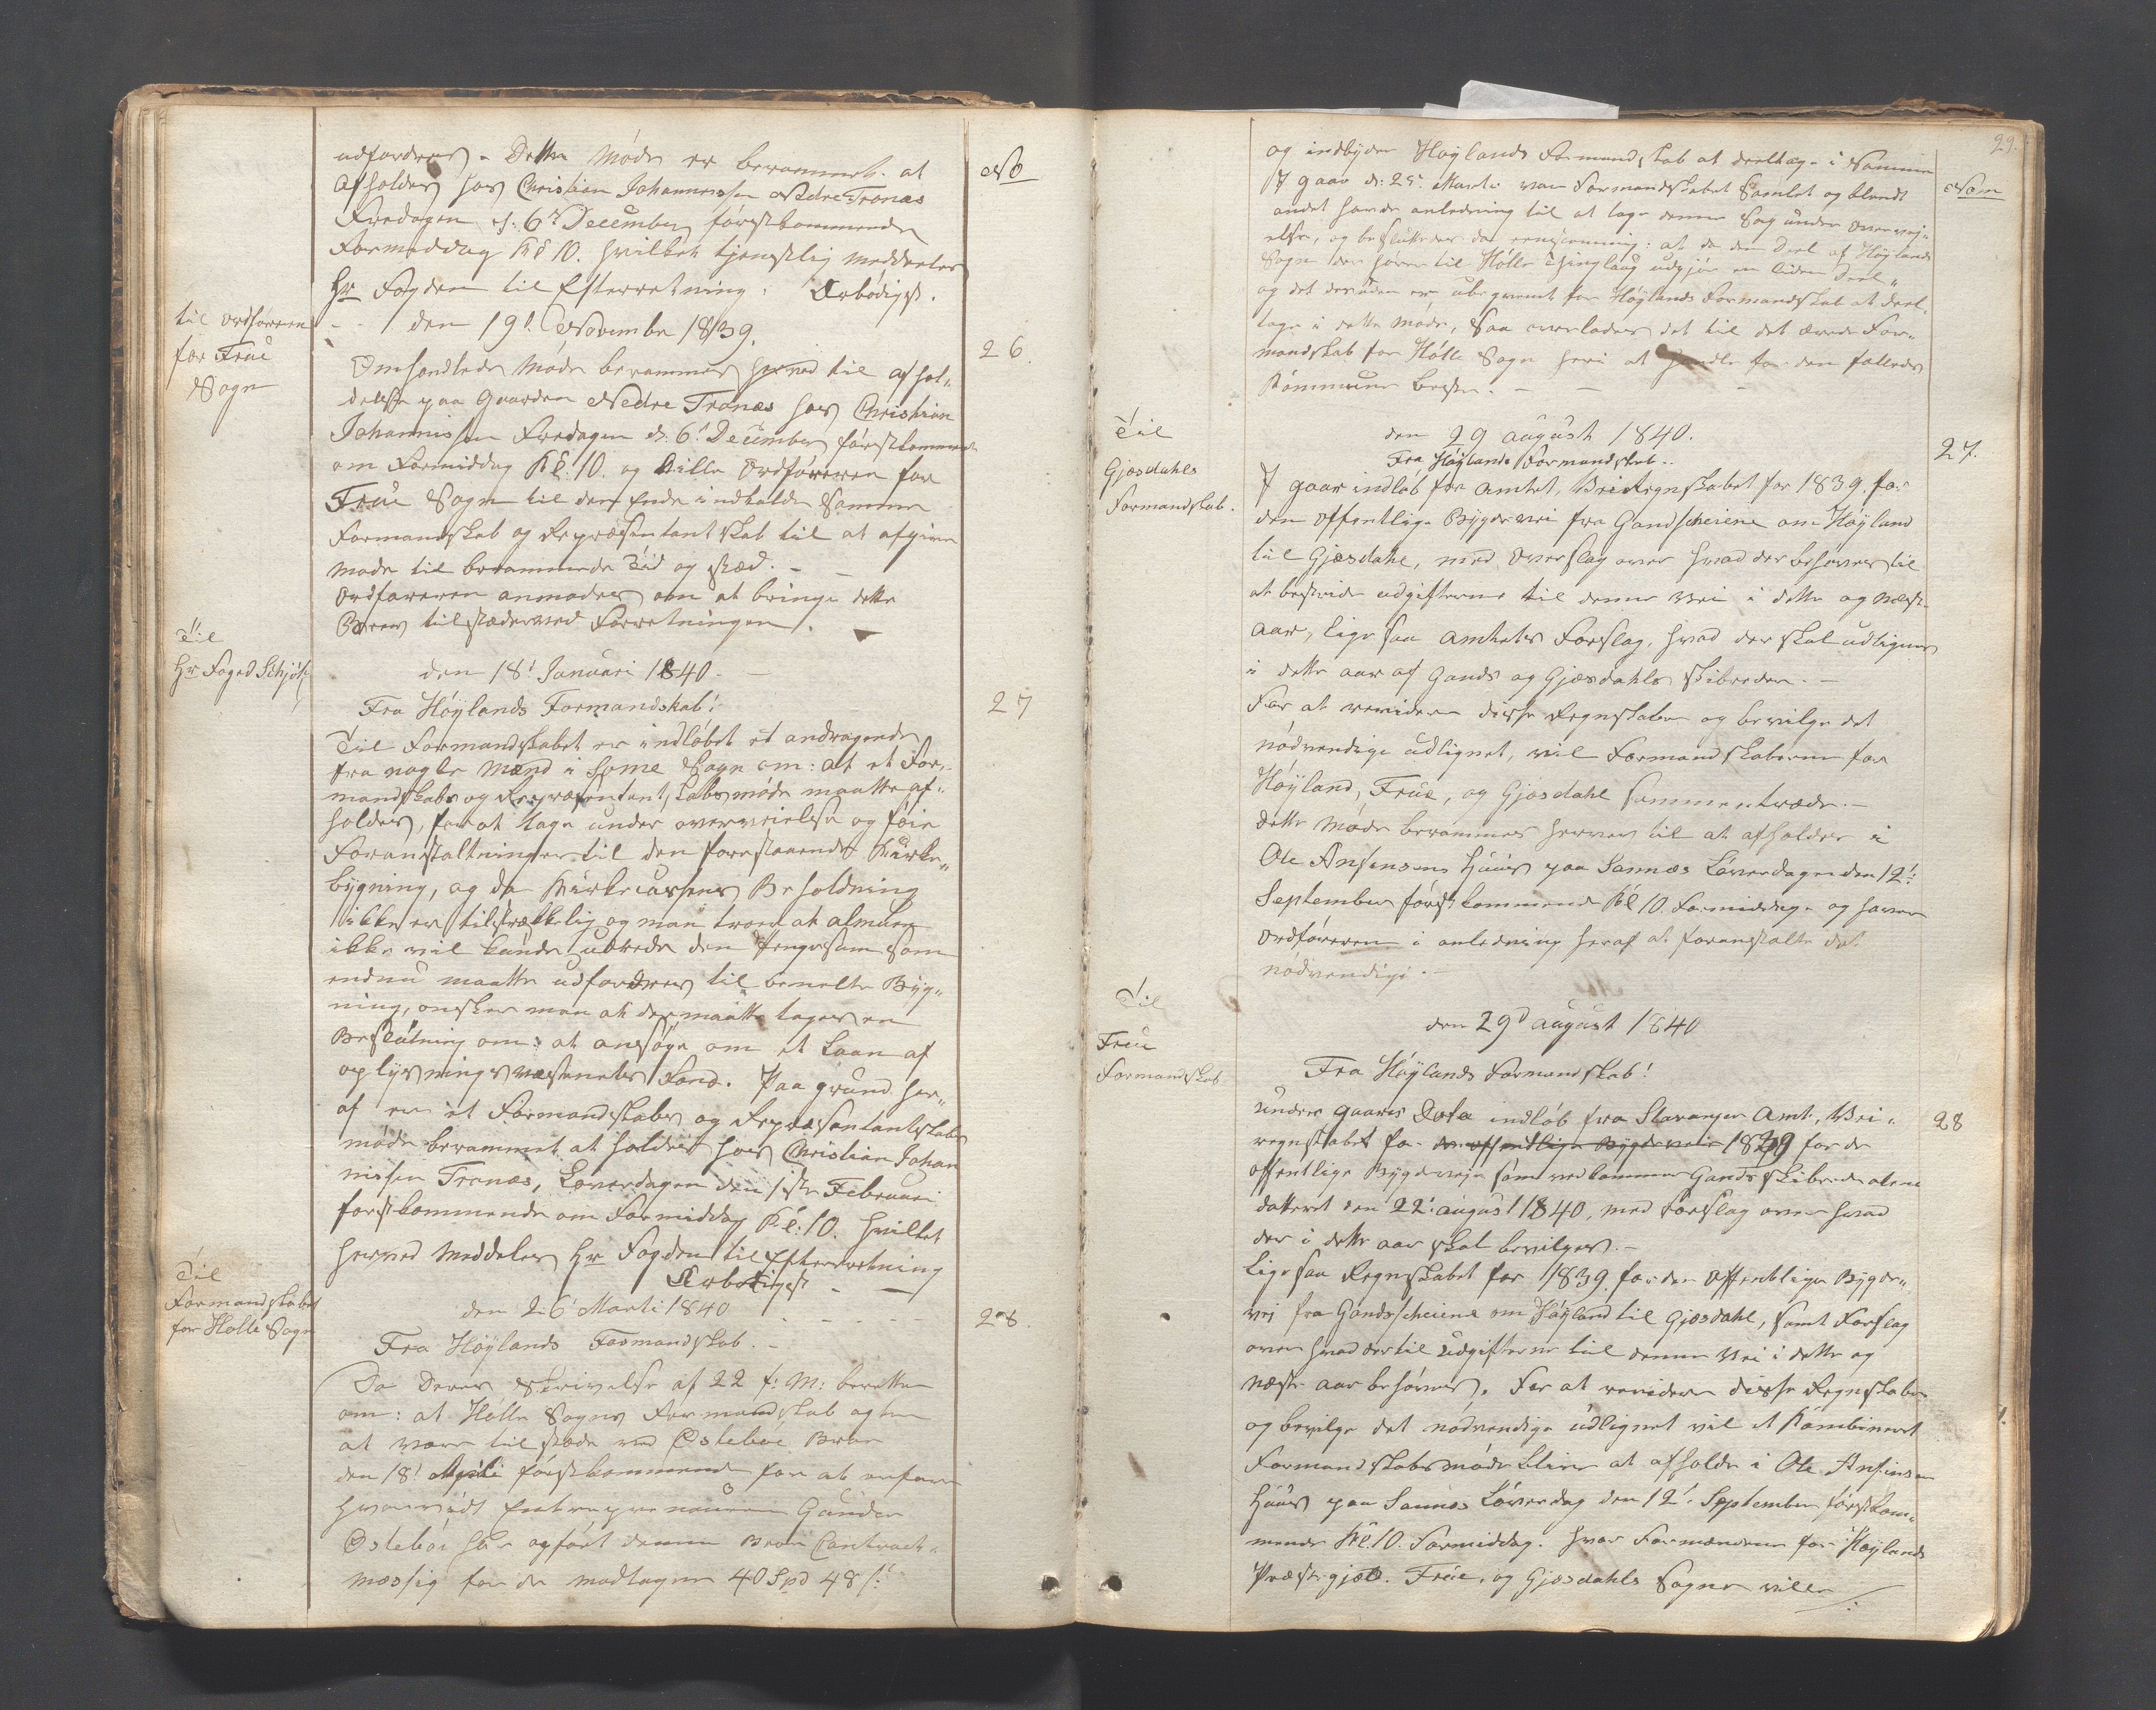 No
udfordres. - Dette Møde er berammet at
afholdes hos Christian Johannessen Nedre Tronæs
Fredagen d: 6te December førstkommende
Formeddag Kl 10. hvilket tjenstlig meddeles
Hr Fogden til Efterretning. Ærbødigst.
til ordføreren
for Frue
Sogn
den 19' Novembr 1839.
26.
Omhandlede Møde berammes herved til afhol-
delse paa Gaarden Nedre Tronæs hos Christian
Johannissen Fredagen d: 6' December førstkommend
om Formiddag Kl: 10. og ville Ordføreren for
Frue Sogn til den Ende indkalde Samme
Formandskab og Repræsentantskab til at afgive
møde til berammede Tid og stæd. -
Ordføreren anmodes om at bringe dette
Brev tilstæde ved Forretningen.
Til
Hr Foged Schjøtz
den 18' Januari 1840. -
Fra Høylands Formandskab!
27
Til Formandskabet er indløbet et andragende
fra nogle Mænd i Same Sogn om: at et For-
mandskabs og Repræsentantskabsmøde maatte af-
holdes, for at tage under overveielse og føie
Foranstaltninger til den forestaaende Kirke-
bygning, og da Kirkecassens Beholdning
ikke er tilstrækkelig og man troer at almuen
ikke vil kunde udrede den Pengesum som
endnu maatte udfordres til bemelte Byg-
ning, ønsker man at der maatte tages en
Beslutning om: at ansøge om et Laan af
oplysningsvæsenets Fond. Paa grund her-
af er et Formandskabs og Repræsentantskabs
møde berammet at holdes hos Christian Johan
nissen Tronæs, Løverdagen den 1ste Februari
førstkommende om Formiddag Kl: 10. hvilket
herved Meddeles Hr Fogden til Efterretning
Ærbødigst -
Til
Formandskabet
for Holle Sogn
den 26' Marti 1840
28.
Fra Høylands Formandskab. -
Da Deres Skrivelse af 22 f: M: berette
om: at Hølle Sogns Formandskab agter
at være tilstæde ved Østebøe Broe
den 18' Aprili førstkommende for at erfare
hvorvidt Entreprenøuren Gunder
Østebøi har opført denne Broe Contract-
mæssig for de modtagne 40 Spd 48 s:
29.
og indbyder Høylands Formandskab at deeltage i Samme
Nom
I gaar d: 25' Martii var Formandskabet Samlet og blandt
andet havde anledning til at tage denne Sag under overvej-
else, og besluttedes da eenstemmig: at da den Deel af Høylands
Sogn der hører til Hølle Thinglaug udgjør en liden Deel,
og det desuden er ubeqvemt for Høylands Formandskab at deel-
tage i dette møde, Saa overlades det til det ærede For-
mandskab for Hølle Sogn heri at handle for den fælleds
Kommunes Beste. -
Til
Gjesdahls
Formandskab.
den 29 august 1840.
Fra Høylands Formandskab.
27.
I gaar indløb fra Amtet, Veiregnskabet for 1839. for
den offentlige Bygdevei fra Gandscheiene om Høyland
til Gjesdahl, med Overslag over hvad der behøves til
at bestride udgifterne til denne Vei i dette og næste
aar, lige saa Amtets Forslag, hvad der skal udlignes
i dette aar af Gands og Gjesdahls Skibreder. -
For at revidere disse Regnskaber og bevilge det
nødvendige udlignet, vil Formandskaberne for
Høyland, Frue, og Gjesdahl sammentræde. -
dette Møde berammes herved til at afholdes i
Ole Ansensens Huus paa Sannæs Løverdagen den 12':
September førstkommende Kl 10. Formiddag. og haver
Ordføreren i anledning heraf at foranstalte det
nødvendige. -
Til
Frue
Formandskab
den 29d august 1840
Fra Høylands Formandskab!
28
Under gaars Dato indløb fra Stavanger Amt, Vei-
regnskabet for den offentlige Bygdeveie 1839 for de
offentlige Bygdeveje som vedkommer Gands Skibrede alene
datteret den 22' august 1840, med Forslag over hvad
der i dette aar skal bevilges. -
Lige saa Regnskabet for 1839. for den offentlige Bygde-
vei fra Gandsscheiene om Høyland til Gjesdahl, samt Forslag
over hvad der til Udgifterne til denne Vei i dette og
næste aar behøves. For at revidere disse Regnskaber
og bevilge det nødvendige udlignet vil et Kombineret
Formandskabsmøde blive at afholde i Ole Ansensen
Huus paa Sannes Løverdag den 12' September førstkom-
mende Kl. 10. Formiddag. hvor Formændene for Høylands
Præstegjæld. Frue, og Gjesdahls Sogne ville